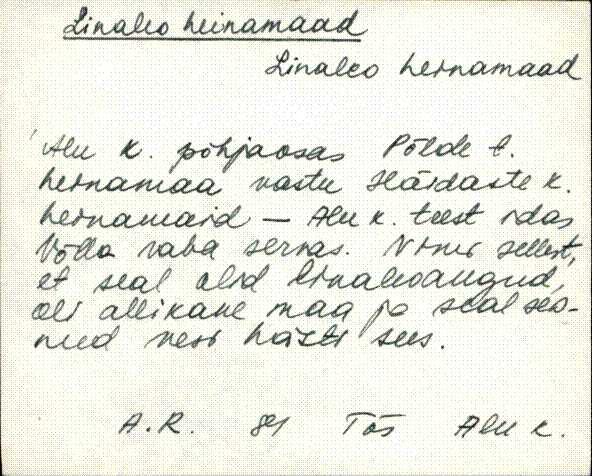 Linaleo heinamaad
Linaleo heinamaad
Alu k. põhjaosas Põlde t.
heinamaa vastu Häidaste k.
heinamaid — Alu k. teest idas
Võlla raba servas. Nimi sellest,
et seal olid linaleoaugud,
oli allikane maa ja seal seo-
nud vesi hästi sees.
A.R. 81 Tõs Alu k.